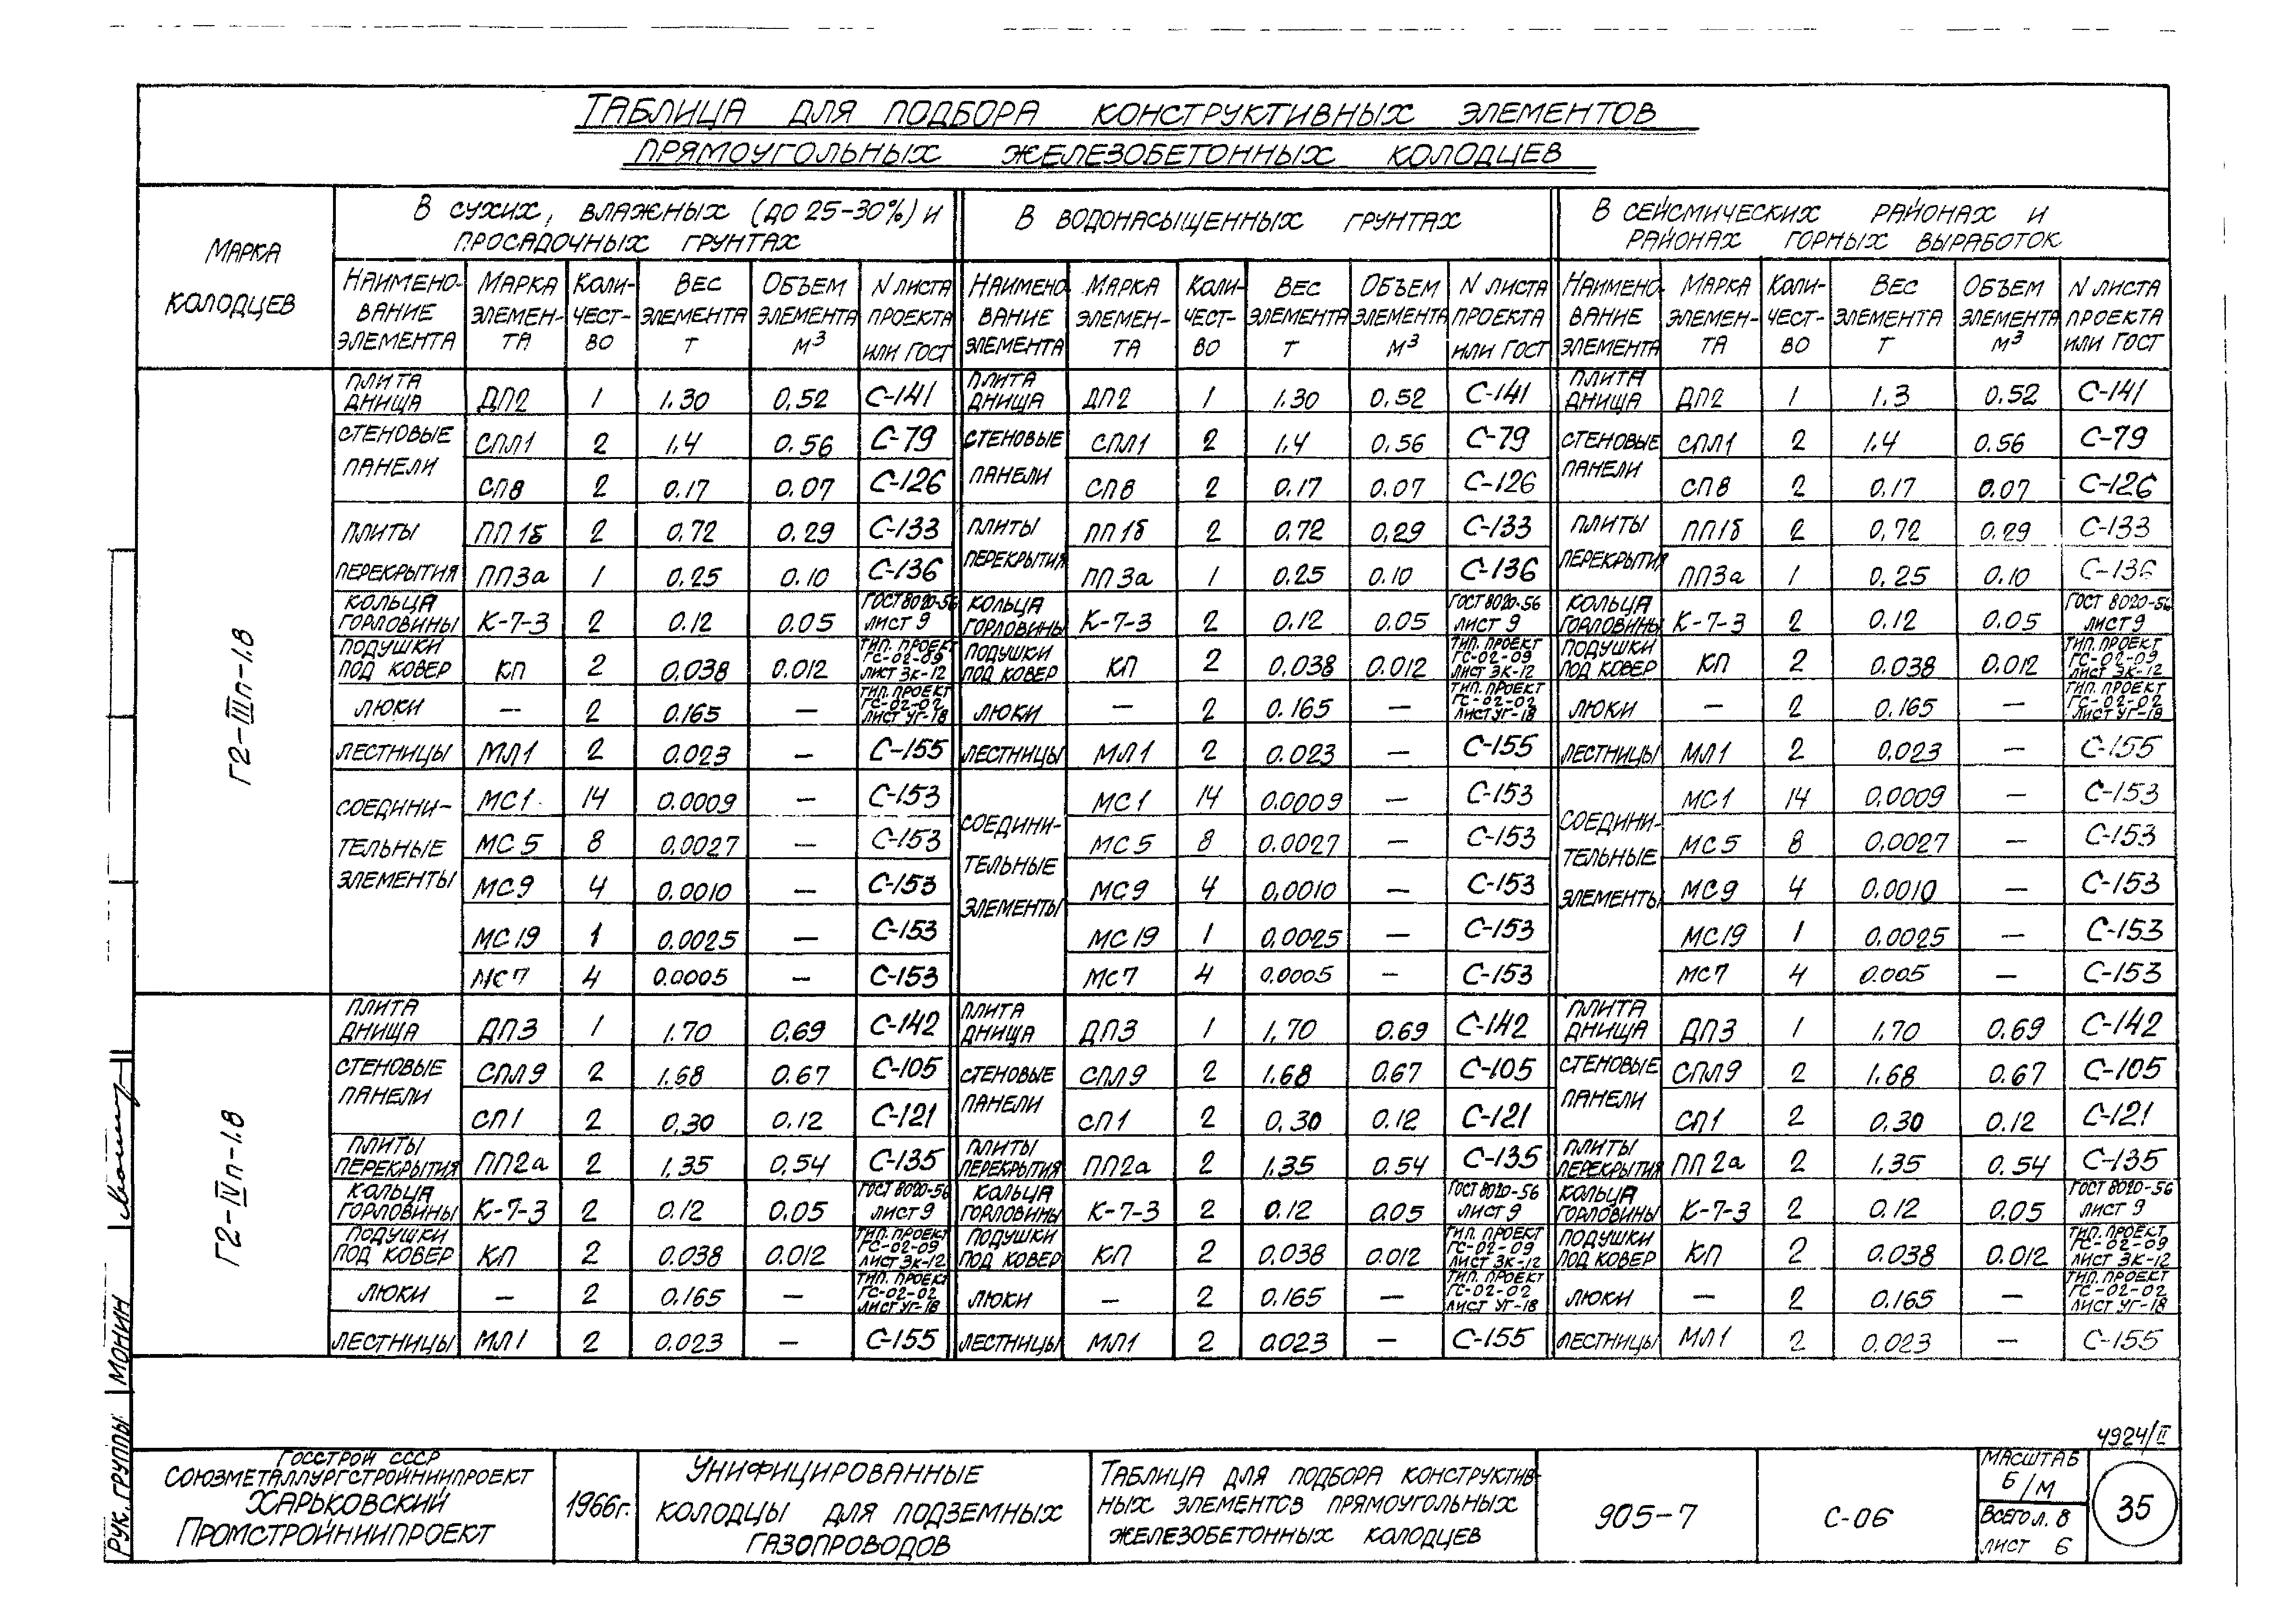 ТАБЛИЦА ДЛЯ ПОДБОРА КОНСТРУКТИВНЫХ ЭЛЕМЕНТОВ
ПРЯМОУГОЛЬНЫХ ЖЕЛЕЗОБЕТОННЫХ КОЛОДЦЕВ
МАРКА КОЛОДЦЕВ
В СУХИХ, ВЛАЖНЫХ (ДО 25-30%) И ПРОСАДОЧНЫХ ГРУНТАХ
В ВОДОНАСЫЩЕННЫХ ГРУНТАХ
В СЕЙСМИЧЕСКИХ РАЙОНАХ И РАЙОНАХ ГОРНЫХ ВЫРАБОТОК
НАИМЕНО-ВАНИЕ ЭЛЕМЕНТА МАРКА ЭЛЕМЕН-ТА КОЛИ-ЧЕСТ-ВО ВЕС ЭЛЕМЕНТА Т ОБЪЕМ ЭЛЕМЕНТА М3 N ЛИСТА ПРОЕКТА ИЛИ ГОСТ НАИМЕНО ВАНИЕ ЭЛЕМЕНТА МАРКА ЭЛЕМЕН-ТА КОЛИ-ЧЕСТ-ВО ВЕС ЭЛЕМЕНТА Т ОБЪЕМ ЭЛЕМЕНТА М3 N ЛИСТА ПРОЕКТА ИЛИ ГОСТ НАИМЕНО-ВАНИЕ ЭЛЕМЕНТА МАРКА ЭЛЕМЕН-ТА КОЛИ-ЧЕСТ-ВО ВЕС ЭЛЕМЕНТА Т ОБЪЕМ ЭЛЕМЕНТА М3 N ЛИСТА ПРОЕКТА ИЛИ ГОСТ
Г2-IIIп-1.8
ПЛИТА ДНИЩА ДП2 1 1.30 0.52 С-141 ПЛИТА ДНИЩА ДП2 1 1.30 0.52 С-141 ПЛИТА ДНИЩА ДП2 1 1.3 0.52 С-141
СТЕНОВЫЕ ПАНЕЛИ СПЛ1 2 1.4 0.56 С-79 СТЕНОВЫЕ ПАНЕЛИ СПЛ1 2 1.4 0.56 С-79 СТЕНОВЫЕ ПАНЕЛИ СПЛ1 2 1.4 0.56 С-79
СП8 2 0.17 0.07 С-126 СП8 2 0.17 0.07 С-126 СП8 2 0.17 0.07 С-126
ПЛИТЫ ПЕРЕКРЫТИЯ ПП1б 2 0.72 0.29 С-133 ПЛИТЫ ПЕРЕКРЫТИЯ ПП1б 2 0.72 0.29 С-133 ПЛИТЫ ПЕРЕКРЫТИЯ ПП1б 2 0.72 0.29 С-133
ПП3а 1 0.25 0.10 С-136 ПП3а 1 0.25 0.10 С-136 ПП3а 1 0.25 0.10 С-136
КОЛЬЦА ГОРЛОВИНЫ К-7-3 2 0.12 0.05 ГОСТ 8020-56 ЛИСТ 9 КОЛЬЦА ГОРЛОВИНЫ К-7-3 2 0.12 0.05 ГОСТ 8020-56 ЛИСТ 9 КОЛЬЦА ГОРЛОВИНЫ К-7-3 2 0.12 0.05 ГОСТ 8020-56 ЛИСТ 9
ПОДУШКИ ПОД КОВЕР КП 2 0.038 0.012 ТИП. ПРОЕКТ ГС-02-09 ЛИСТ ЭК-12 ПОДУШКИ ПОД КОВЕР КП 2 0.038 0.012 ТИП. ПРОЕКТ ГС-02-09 ЛИСТ ЭК-12 ПОДУШКИ ПОД КОВЕР КП 2 0.038 0.012 ТИП. ПРОЕКТ ГС-02-09 ЛИСТ ЭК-12
ЛЮКИ — 2 0.165 — ТИП. ПРОЕКТ ГС-02-02 ЛИСТ УГ-18 ЛЮКИ — 2 0.165 — ТИП. ПРОЕКТ ГС-02-02 ЛИСТ УГ-18 ЛЮКИ — 2 0.165 — ТИП. ПРОЕКТ ГС-02-02 ЛИСТ УГ-18
ЛЕСТНИЦЫ МЛ1 2 0.023 — С-155 ЛЕСТНИЦЫ МЛ1 2 0.023 — С-155 ЛЕСТНИЦЫ МЛ1 2 0.023 — С-155
СОЕДИНИ-ТЕЛЬНЫЕ ЭЛЕМЕНТЫ МС1 14 0.0009 — С-153 СОЕДИНИ-ТЕЛЬНЫЕ ЭЛЕМЕНТЫ МС1 14 0.0009 — С-153 СОЕДИНИ-ТЕЛЬНЫЕ ЭЛЕМЕНТЫ МС1 14 0.0009 — С-153
МС5 8 0.0027 — С-153 МС5 8 0.0027 — С-153 МС5 8 0.0027 — С-153
МС9 4 0.0010 — С-153 МС9 4 0.0010 — С-153 МС9 4 0.0010 — С-153
МС19 1 0.0025 — С-153 МС19 1 0.0025 — С-153 МС19 1 0.0025 — С-153
МС7 4 0.0005 — С-153 МС7 4 0.0005 — С-153 МС7 4 0.005 — С-153
Г2-IVп-1.8
ПЛИТА ДНИЩА ДП3 1 1.70 0.69 С-142 ПЛИТА ДНИЩА ДП3 1 1.70 0.69 С-142 ПЛИТА ДНИЩА ДП3 1 1.70 0.69 С-142
СТЕНОВЫЕ ПАНЕЛИ СПЛ9 2 1.68 0.67 С-105 СТЕНОВЫЕ ПАНЕЛИ СПЛ9 2 1.68 0.67 С-105 СТЕНОВЫЕ ПАНЕЛИ СПЛ9 2 1.68 0.67 С-105
СП1 2 0.30 0.12 С-121 СП1 2 0.30 0.12 С-121 СП1 2 0.30 0.12 С-121
ПЛИТЫ ПЕРЕКРЫТИЯ ПП2а 2 1.35 0.54 С-135 ПЛИТЫ ПЕРЕКРЫТИЯ ПП2а 2 1.35 0.54 С-135 ПЛИТЫ ПЕРЕКРЫТИЯ ПП2а 2 1.35 0.54 С-135
КОЛЬЦА ГОРЛОВИНЫ К-7-3 2 0.12 0.05 ГОСТ 8020-56 ЛИСТ 9 КОЛЬЦА ГОРЛОВИНЫ К-7-3 2 0.12 0.05 ГОСТ 8020-56 ЛИСТ 9 КОЛЬЦА ГОРЛОВИНЫ К-7-3 2 0.12 0.05 ГОСТ 8020-56 ЛИСТ 9
ПОДУШКИ ПОД КОВЕР КП 2 0.038 0.012 ТИП. ПРОЕКТ ГС-02-09 ЛИСТ ЭК-12 ПОДУШКИ ПОД КОВЕР КП 2 0.038 0.012 ТИП. ПРОЕКТ ГС-02-09 ЛИСТ ЭК-12 ПОДУШКИ ПОД КОВЕР КП 2 0.038 0.012 ТИП. ПРОЕКТ ГС-02-09 ЛИСТ ЭК-12
ЛЮКИ — 2 0.165 — ТИП. ПРОЕКТ ГС-02-02 ЛИСТ УГ-18 ЛЮКИ — 2 0.165 — ТИП. ПРОЕКТ ГС-02-02 ЛИСТ УГ-18 ЛЮКИ — 2 0.165 — ТИП. ПРОЕКТ ГС-02-02 ЛИСТ УГ-18
ЛЕСТНИЦЫ МЛ1 2 0.023 — С-155 ЛЕСТНИЦЫ МЛ1 2 0.023 — С-155 ЛЕСТНИЦЫ МЛ1 2 0.023 — С-155
РУК. ГРУППЫ МОНИН
4924/II
ГОССТРОЙ СССР
СОЮЗМЕТАЛЛУРГСТРОЙНИИПРОЕКТ
ХАРЬКОВСКИЙ
ПРОМСТРОЙНИИПРОЕКТ
1966г.
УНИФИЦИРОВАННЫЕ
КОЛОДЦЫ ДЛЯ ПОДЗЕМНЫХ
ГАЗОПРОВОДОВ
ТАБЛИЦА ДЛЯ ПОДБОРА КОНСТРУКТИВ-
НЫХ ЭЛЕМЕНТОВ ПРЯМОУГОЛЬНЫХ
ЖЕЛЕЗОБЕТОННЫХ КОЛОДЦЕВ
905-7
С-06
МАСШТАБ
Б/М
ВСЕГО Л. 8
ЛИСТ 6
35